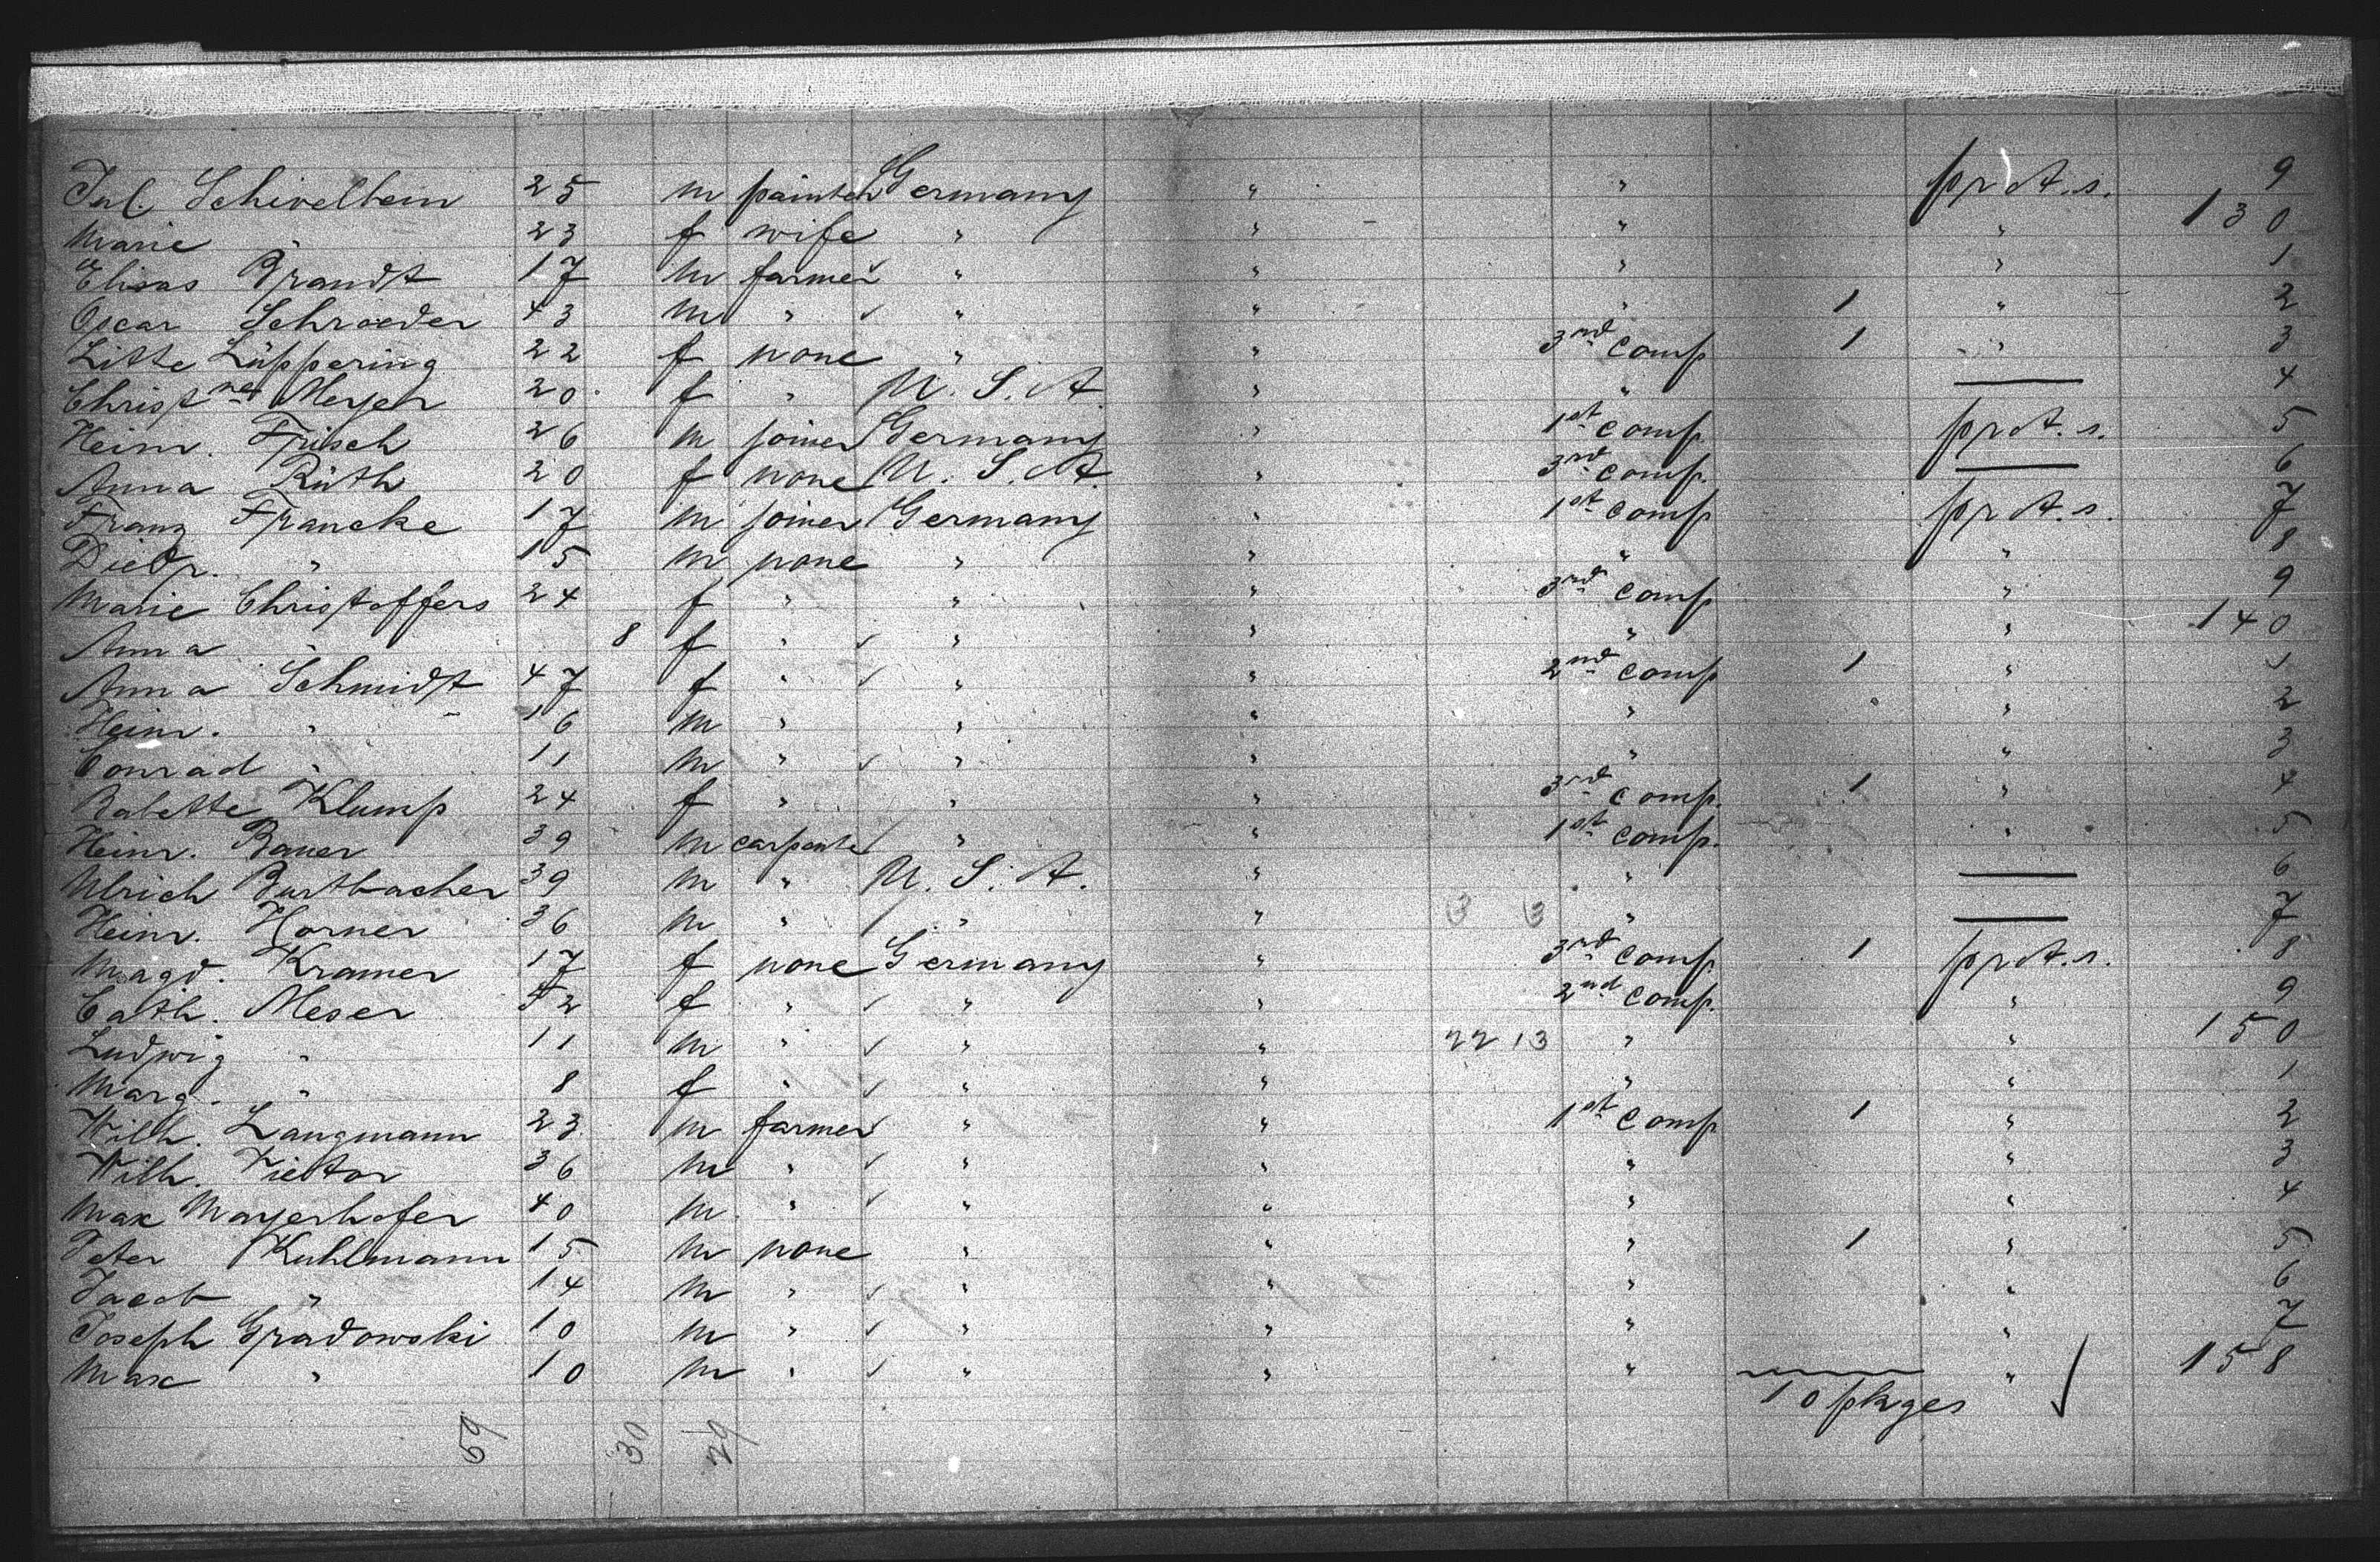 Jul. Schivelbein 25 m painter Germany " " pr A. s. 9
Marie " 23 f wife " " " " 130
Elisas Brandt 17 m farmer " " " " 1
Oscar Schroeder 43 m " " " " 1 " 2
Litte Lüppering 22 f none " " 3rd comp 1 " 3
Christne Meyer 20 f " U. S. A. " " — 4
Heinr. Frisch 26 m joiner Germany " 1st comp pr A. s. 5
Anna Rüth 20 f none U. S. A. " 3rd comp. — 6
Franz Francke 17 m joiner Germany " 1st comp pr A. s. 7
Diedr. " 15 m none " " " " 8
Marie Christoffers 24 f " " " 3rd comp " 9
Anna " 8 f " " " " " 140
Anna Schmidt 47 f " " " 2nd comp 1 " 1
Heinr. " 16 m " " " " " 2
Conrad " 11 m " " " " " 3
Babette Klump 24 f " " " 3rd comp. 1 " 4
Heinr. Bauer 39 m carpenter " " 1st comp. " 5
Ulrich Burtbacher 39 m " U. S. A. " " — 6
Heinr. Horner 36 m " " " " — 7
Magd. Kramer 17 f none Germany " 3rd comp. 1 pr A. s. 8
Cath. Meser 52 f " " " 2nd comp. " 9
Ludwig " 11 m " " " 22 13 " " 150
Marg. " 8 f " " " " " 1
Wilh. Langmann 23 m farmer " " 1st comp 1 " 2
Wilh. Vietor 36 m " " " " " 3
Max Mayerhofer 40 m " " " " " 4
Peter Kuhlmann 15 m none " " " 1 " 5
Jacob " 14 m " " " " " 6
Joseph Gradowski 10 m " " " " " 7
Max " 10 m " " " " " 158
10 pkges
59 30 29